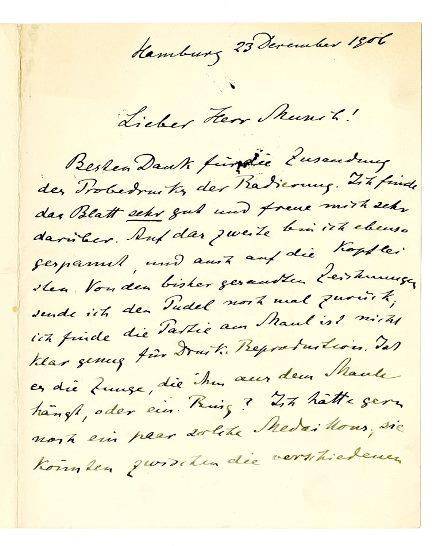 Hamburg 23 Dezember 1906
Lieber Herr Munch!
Besten Dank für die Zusendung
des Probedrucks der Radierung. Ich finde
das Blatt sehr gut und freue mich sehr
darüber. Auf das zweite bin ich ebenso
gespannt, und auch auf die Kopflei
sten. Von den bisher gesandten Zeichnungen
sende ich den Pudel noch mal zurück,
ich finde die Partie am Maul ist nicht
klar genug für Druck-Reproduction. Ist
es die Zunge, die ihm aus dem Maule
hängt, oder ein Ring? Ich hätte gern
noch ein paar solche Medaillons, sie
könnten zwischen die verschiedenen